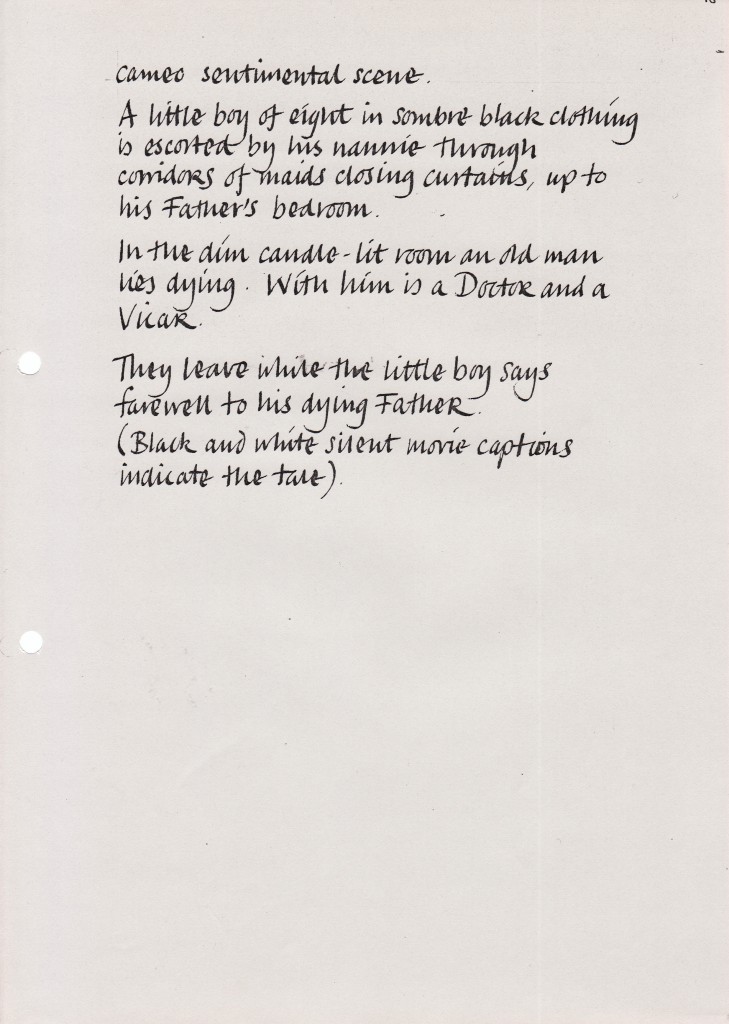 cameo sentimental scene.
A little boy of eight in sombre black clothing
is escorted by his nannie through
corridors of maids closing curtains, up to
his Father's bedroom.
In the dim candle-lit room an old man
lies dying. With him is a Doctor and a
Vicar.
They leave while the little boy says
farewell to his dying Father.
(Black and white silent movie captions
indicate the tale).